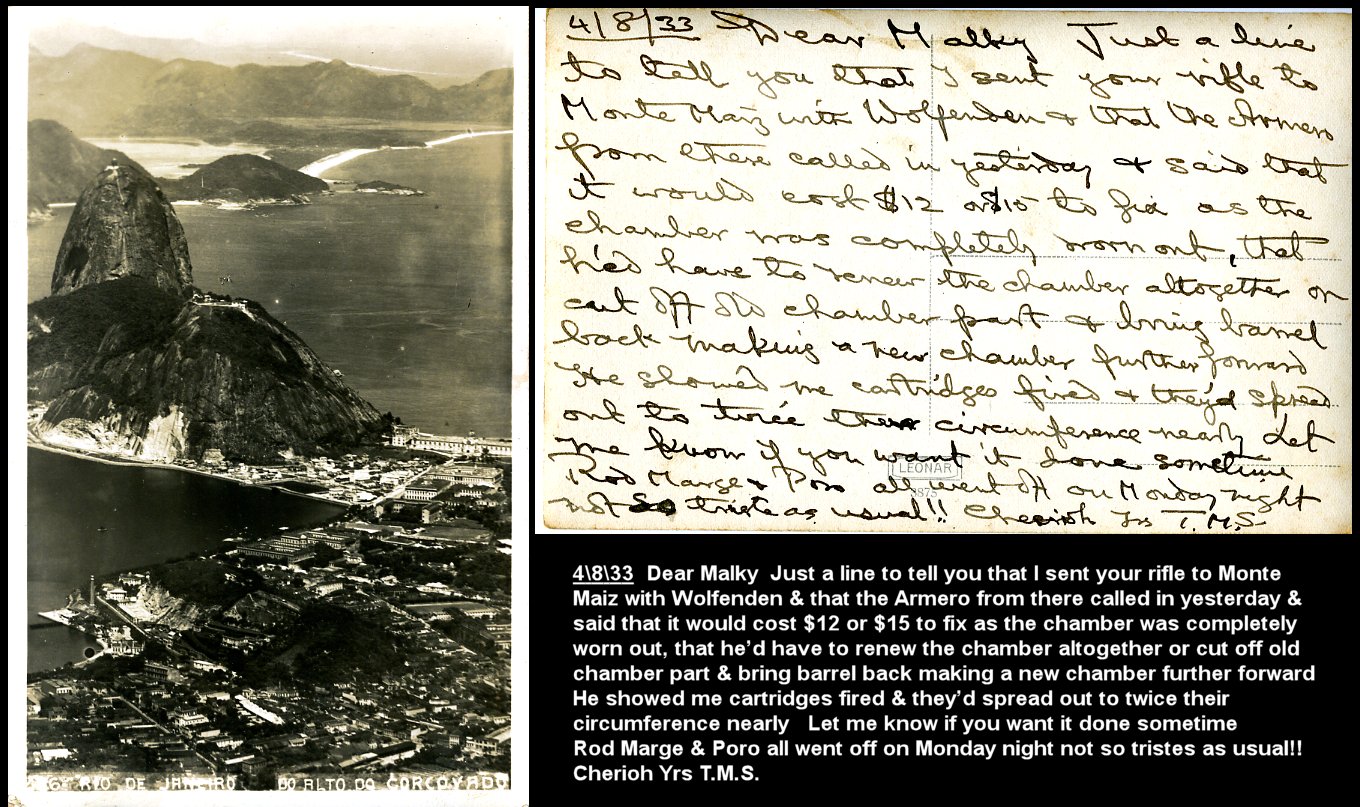 6ª RIO DE JANEIRO DO ALTO DO CORCOVADO
4/8/33 Dear Malky Just a line
to tell you that I sent your rifle to
Monte Maiz with Wolfenden & that the Armero
from there called in yesterday & said that
it would cost $12 or $15 to fix as the
chamber was completely worn out, that
he'd have to renew the chamber altogether or
cut off old chamber part & bring barrel
back making a new chamber further forward
He showed me cartridges fired & they'd spread
out to twice their circumference nearly Let
me know if you want it done sometime
LEONAR
Rod Marge & Poro all went off on Monday night
not so triste as usual!! Cherioh Yrs T.M.S.
4\8\33 Dear Malky Just a line to tell you that I sent your rifle to Monte
Maiz with Wolfenden & that the Armero from there called in yesterday &
said that it would cost $12 or $15 to fix as the chamber was completely
worn out, that he’d have to renew the chamber altogether or cut off old
chamber part & bring barrel back making a new chamber further forward
He showed me cartridges fired & they’d spread out to twice their
circumference nearly Let me know if you want it done sometime
Rod Marge & Poro all went off on Monday night not so tristes as usual!!
Cherioh Yrs T.M.S.